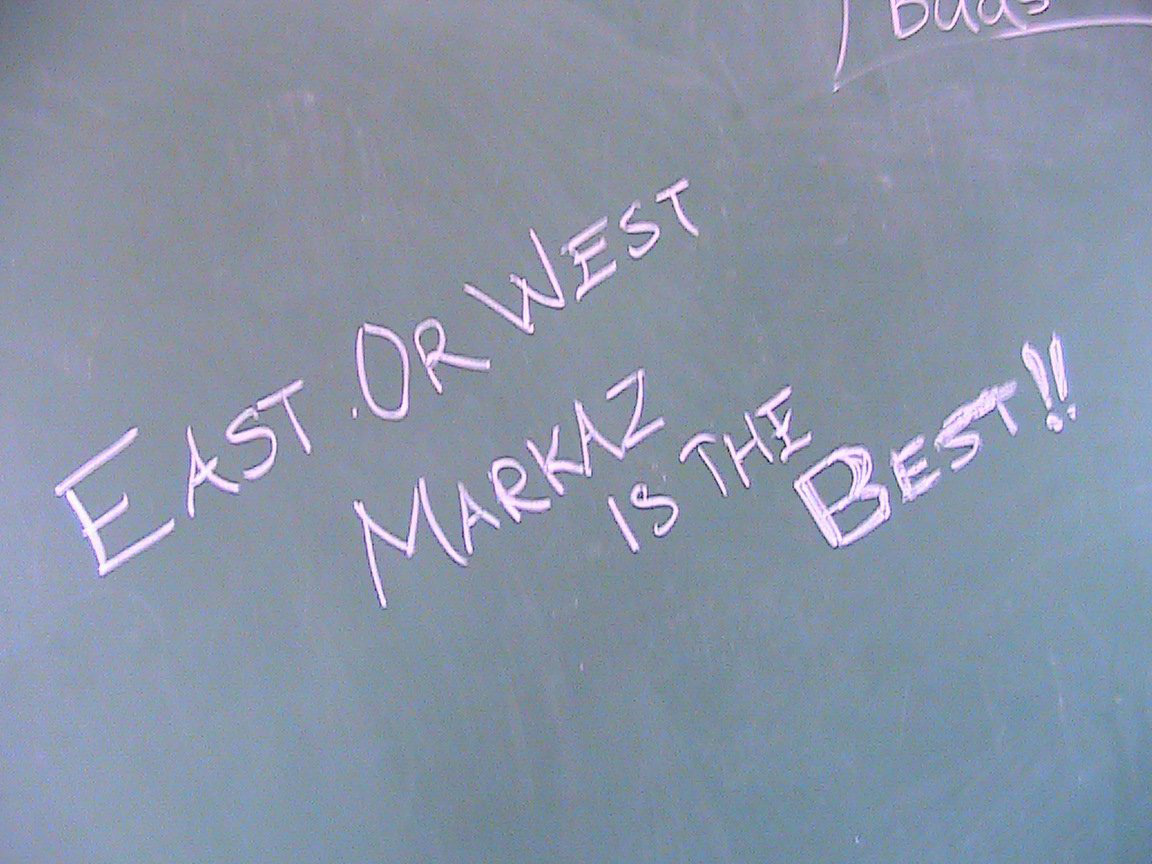 EAST OR WEST
MARKAZ IS THE BEST!!